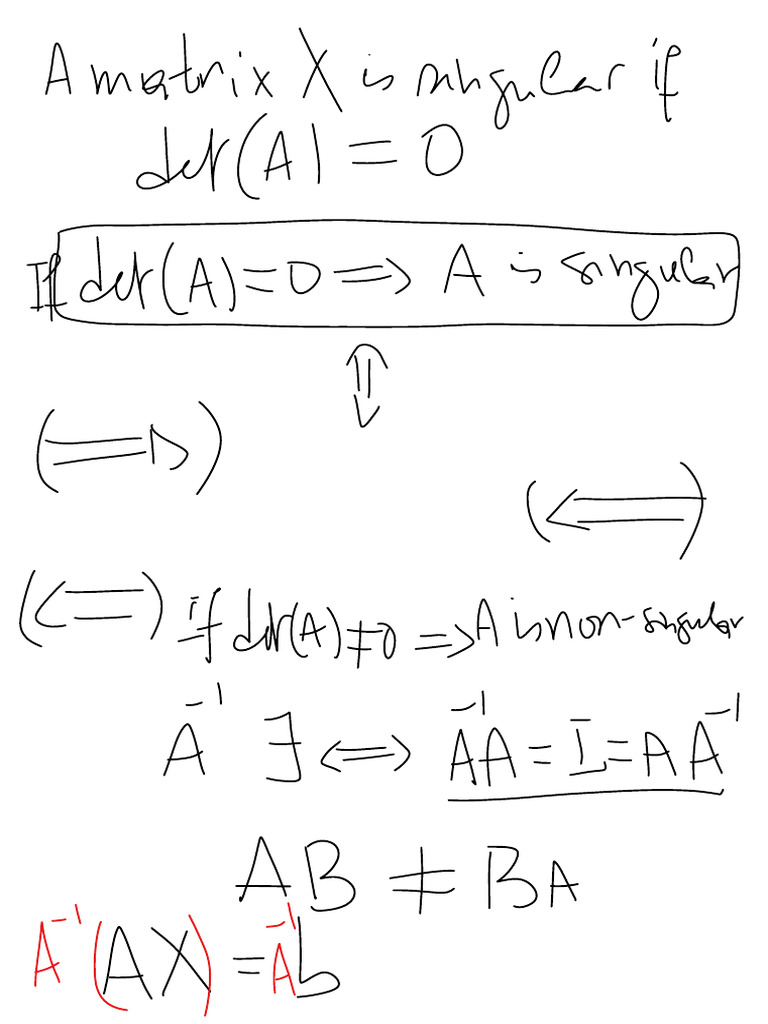 A matrix X is singular if
det(A) = 0
If det(A) = 0 ⟹ A is singular
⇕
(⟹)
(⟸)
(⟸) if det(A) ≠ 0 ⟹ A is non-singular
A⁻¹ ∃ ⟺ A⁻¹A = I = AA⁻¹
AB ≠ BA
A⁻¹(AX) = A⁻¹b